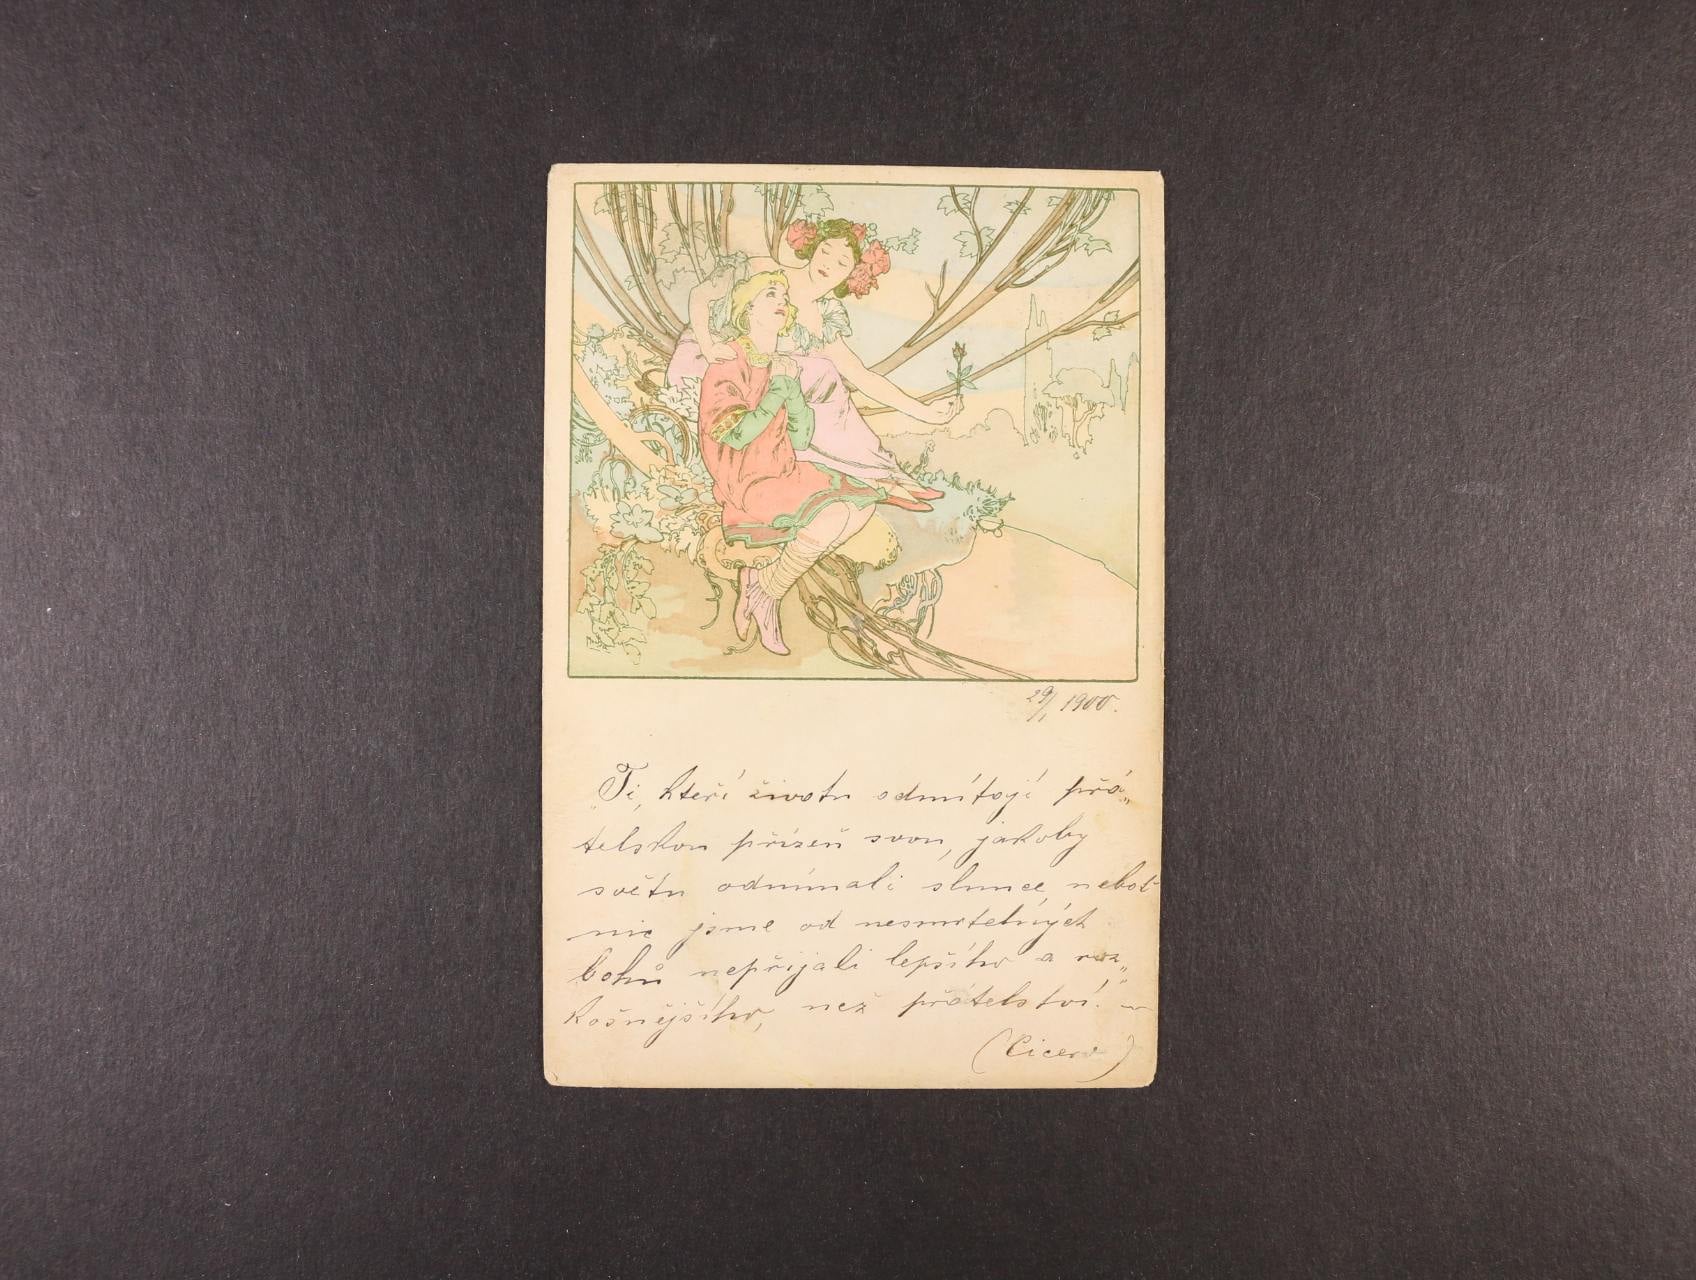 29/1 1900.
„Ti, kteří životu odmítají přá„
telskou přízeň svou, jakoby
světu odnímali slunce, neboť
nic jsme od nesmrtelných
bohů nepřijali lepšího a roz„
košnějšího, než přátelství.“ —
(Cicero)